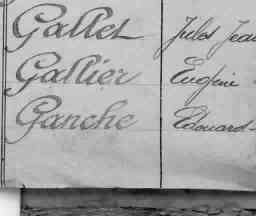 Gallet Jules Jean
Gallier Eugène
Ganche Edouard-